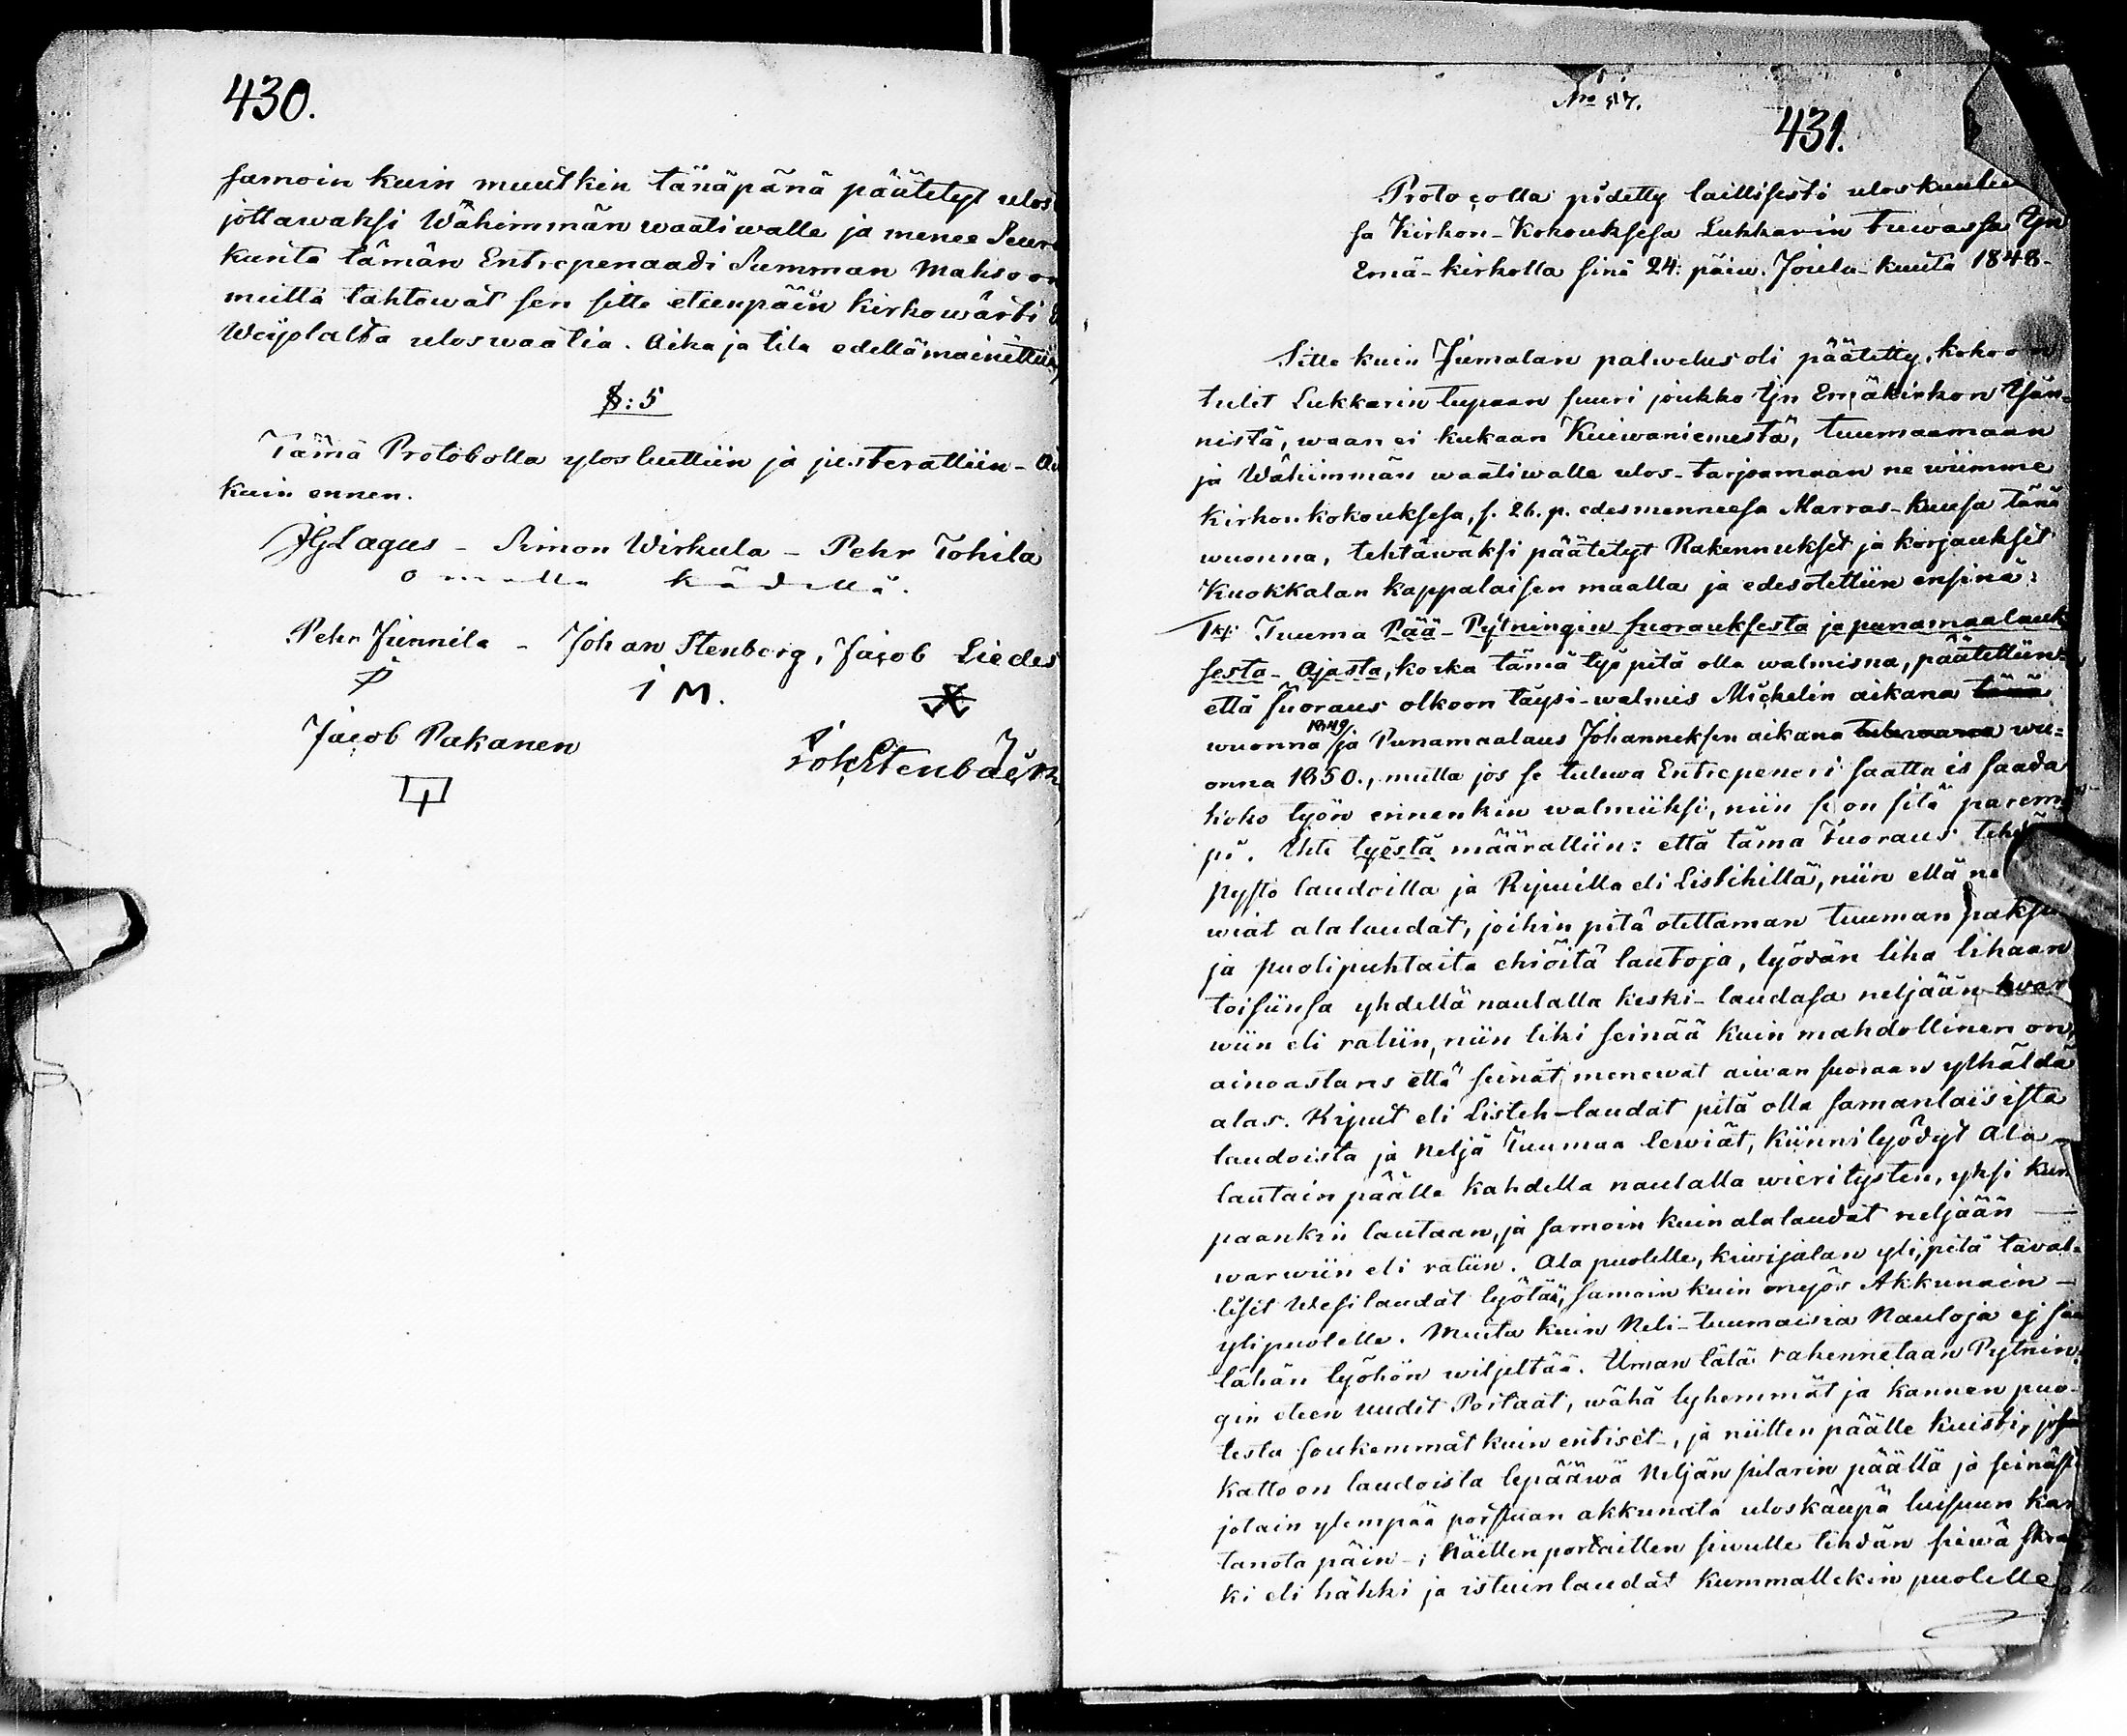 430.
samoin kuin muutkin tänäpänä päätetyt ulos
jottawaksi Wähimmän waatiwalle ja menee Seura
kunta tämän Entrepenaadi Summan Maksoon
mutta tahtowat sen sitte eteenpäin kirkowärti
Weijolalta uloswaatia. Aika ja tila edellämainittu
§: 5
Tämä Protokolla ylosluettiin ja justerattiin -
kuin ennen.
JGLagus - Simon Wirkula - Pehr Tohila
omalla kädellä.
Pehr Junnila - Johan Stenberg, Jacob Liedes
I M.
Jacob Pakanen
Joh Stenbäck
No 57.
431.
Protocolla pidetty laillisesti uloskuulu
sa Kirkon-Kokouksesa Lukkarin tuwassa Ijn
Emä-kirkolla sinä 24. päiw. Joulu-kuuta 1848-
Sitte kuin Jumalan palwelus oli päätetty, kokoon
tulit Lukkarin tupaan suuri joukko Ijn Emäkirkon Isän-
nistä, waan ei kukaan Kuiwaniemestä, tuumaamaan
ja Wähimmän waatiwalle ulos-tarjoamaan ne wiimme
Kirkonkokouksesa, s. 26. p. edesmenneesa Marras-Kuusa tänä
wuonna, tehtäwäksi päätetyt Rakennukset ja korjaukset
Kuokkalan kappalaisen maalla ja edesotettiin ensinä:
1ksi Tuuma Pää-Pytningin fuorauksesta ja punamaalauk
sesta- Ajasta, koska tämä työ pitä olla walmisna, päätettiin
että fuoraus olkoon täysi-walmis Michelin aikana tänä
wuonna 1849 ja Punamaalaus Johanneksen aikana tulewana wu-
onna 1850., mutta jos se tulewa Entrepenori saattais saada
koko työn ennenkin walmiiksi, niin se on sitä parem-
pi. Itte työstä määrattiin: että tämä fuoraus tehdä
pysto laudoilla ja Rijuilla eli Listihillä, niin että ne
wiat alalaudat, joihin pitä otettaman tuuman paksu
ja puolipuhtaita ehiöitä lautoja, lyödän liha lihaan
toisiinsa yhdellä naulalla keski-laudasa neljään hwar
wiin eli ratiin, niin liki seinää kuin mahdollinen on,
ainoastans että seinät menewät aiwan suoraan ylhäldä
alas. Rijut eli Listeh-laudat pitä olla samanlaisista
laudoista ja neljä Tuumaa lewiät, kiinnilyödyt Ala
lautain päälle kahdella naulalla wieritysten, yksi kum
paankin lautaan, ja samoin kuin alalaudat neljään
warwiin eli ratiin. Ala puolelle, kiwijalan yli, pitä taval-
liset Wesilaudat lyötää, samoin kuin myös Akkunain
ylipuolelle. Muita kuin Neli-tuumaisia Nauloja ej saa
tähän työhön wiljeltää. Uman tätä rahennetaan Pytnin-
gin eteen uudet Portaat, wähä lyhemmät ja kannen puo-
lesta soukemmat kuin entiset-, ja niitten päälle kuisti, josa
katto on laudoista lepääwä Neljän pilarin päällä ja seinäst
jotain ylempää porstuan akkunata uloskäupä luisuun kar
tanota päin-; Näitten portaitten siwulle tehdän siewä skra
ki eli häkki ja istuinlaudat kummallekin puolelle